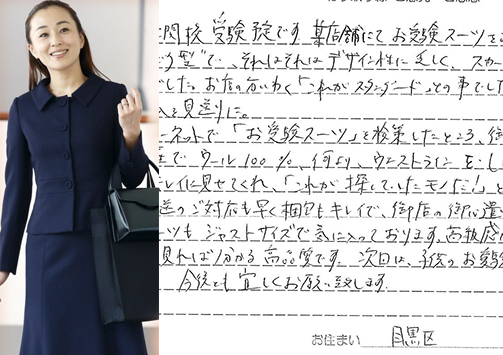 関校受験予定です。某店舗にてお受験スーツを
型"で、それはそれはデザイン性に乏しく、スカー
した。お店の方いわく「これがスタンダード」との事でした
見送りに。
ーネットで「お受験スーツ」を検索したところ、御
で、ウール100%、何より、ウエストラインを
レイに見せてくれ、「これが探していたモノだ!」と
送のご対応も早く梱包もキレイで、御店の御心遣
ーツもジャストサイズで気に入っております。高級感
見れば分かる高品質です。次回は、子供のお受験
今後とも宜しくお願い致します。
お住まい 目黒区